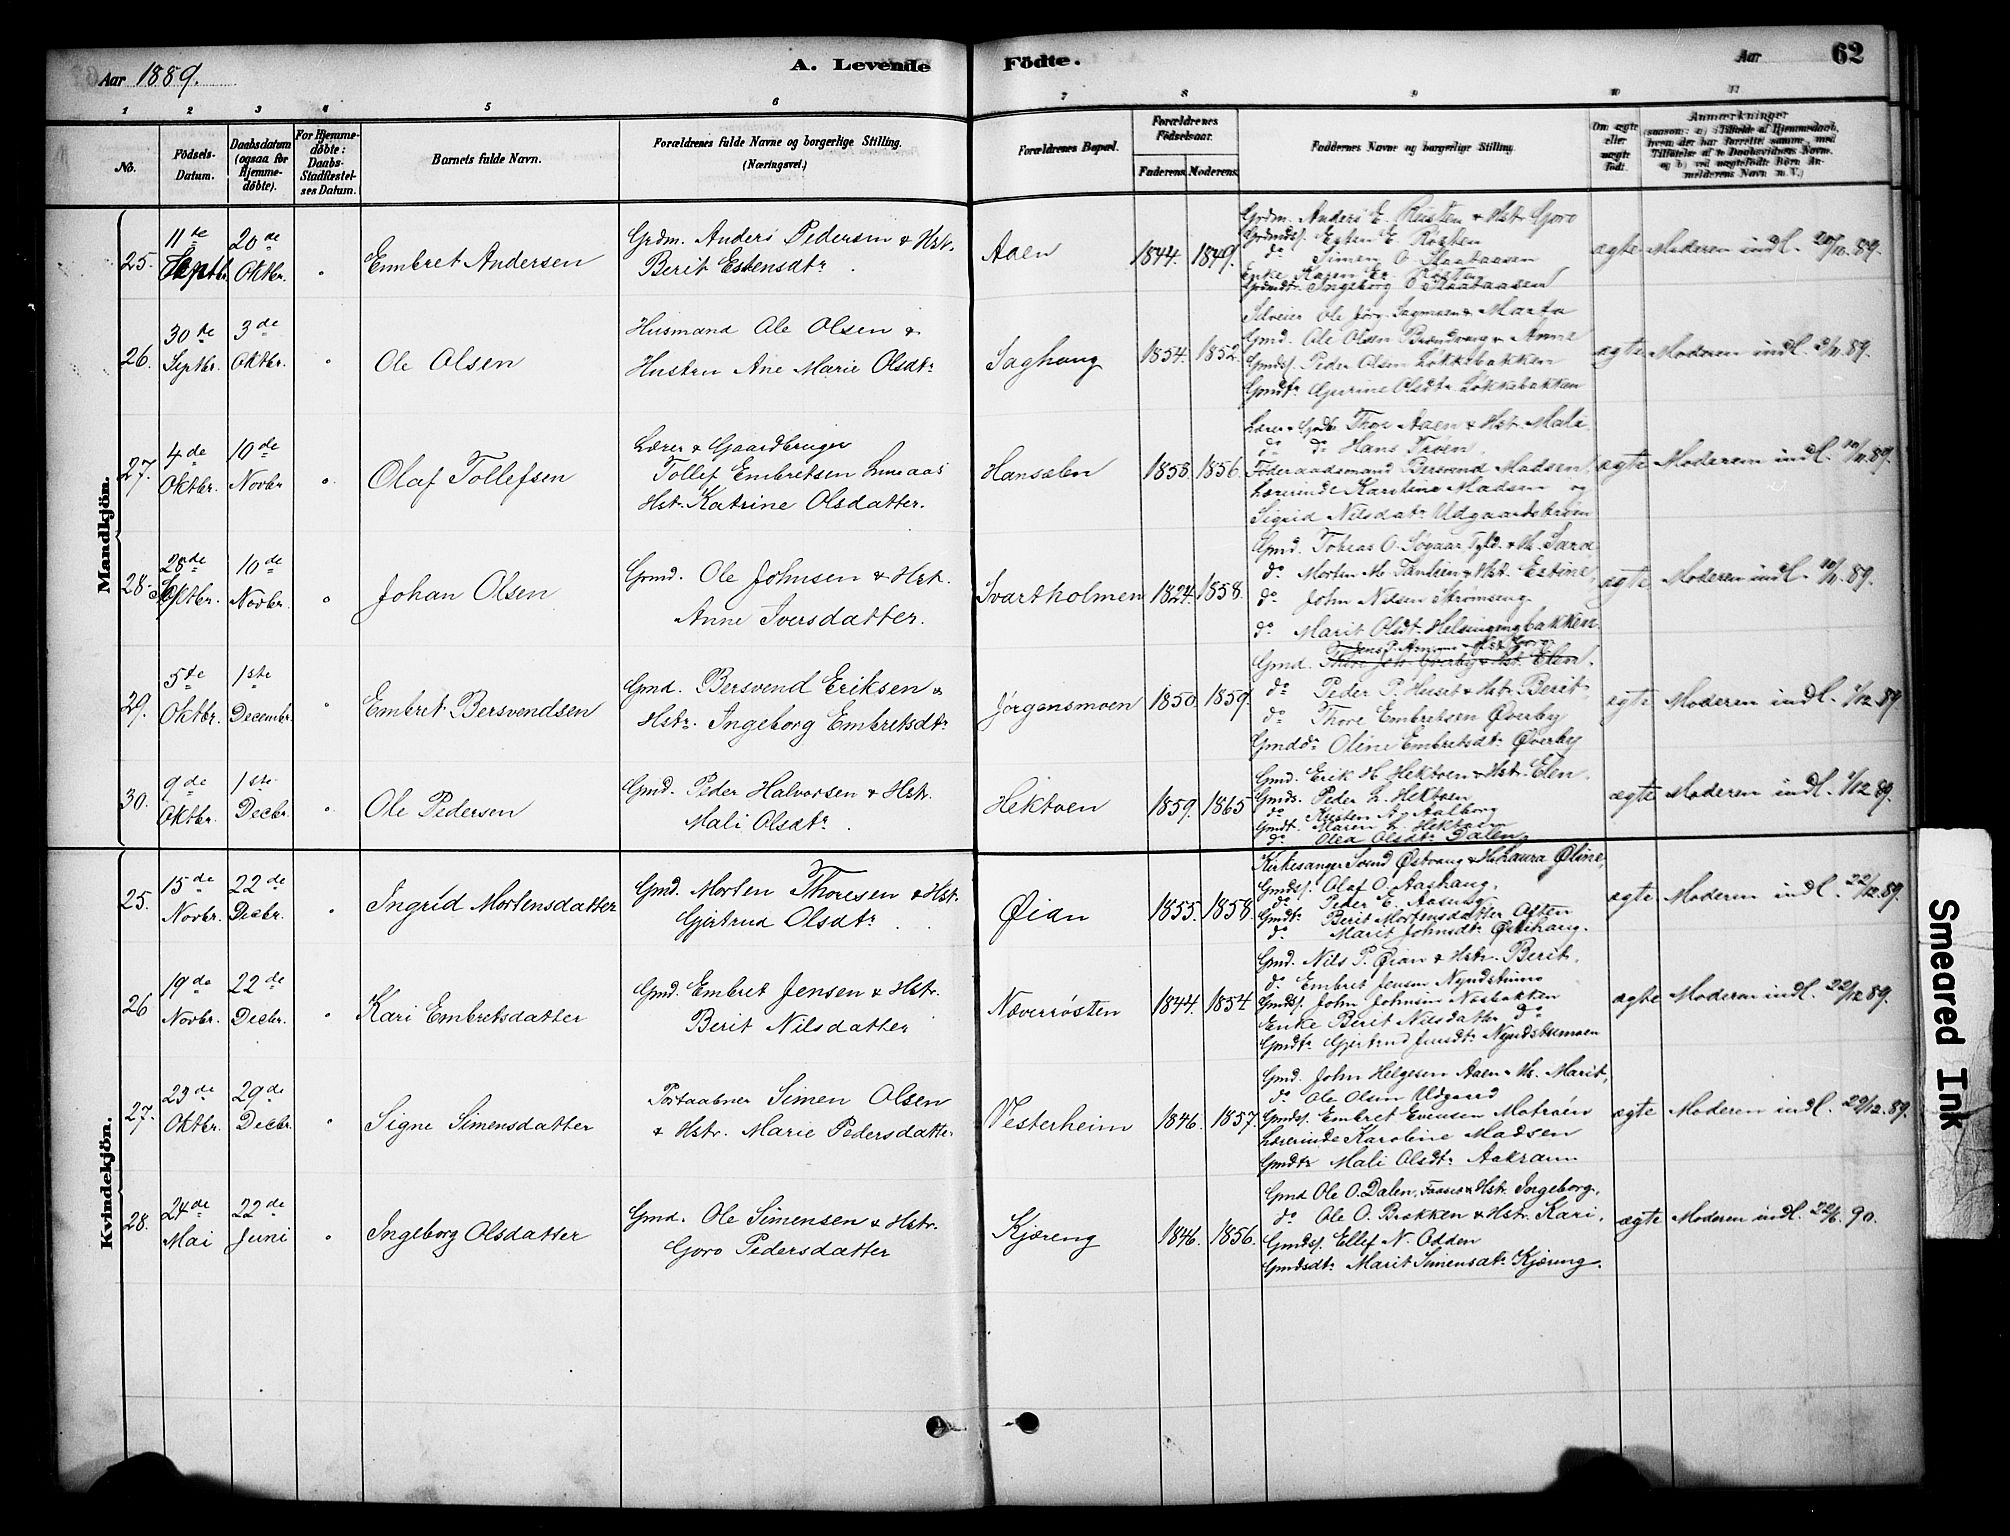 Aar 1889.
A. Levende Födte.
Aar
62
1 2 3 4 5 6 7 8 9 10 11
No.
Födsels-Datum.
Daabsdatum (ogsaa for Hjemme-døbte).
For Hjemme-døbte: Daabs-Stadfæstel-ses Datum.
Barnets fulde Navn.
Forældrenes fulde Navne og borgerlige Stilling. (Næringsvei.)
Forældrenes Bopæl.
Forældrenes Födselsaar.
Faderens. Moderens.
Faddernes Navne og borgerlige Stilling.
Om ægte eller uægte født.
Anmærkninger
Mandkjön.
25. 11te Septbr. 20de Oktbr. " Embret Andersen
Grdm. Anders Pedersen & Hst.
Berit Estensdtr.
Aaen 1844. 1849.
Grdm. Anders E. Rusten & Hst. Goro
Grdmds. Esten E. Rosten
do Simen O. Staataasen
Enke Karen Er. Røsten
Grdmdtr. Ingeborg O. Staataasen
ægte Moderen indl. 20/10.89.
26. 30te Septbr. 3de Oktbr. " Ole Olsen
Husmand Ole Olsen &
Hustru Ane Marie Olsdtr
Saghaug 1854. 1852.
Selveier Ole Jørg. Sagmoen & Marta
Gmd. Ole Olsen Brandvang & Anne
Gmds. Peder Olsen Løkkebakken
Gmdtr. Gurine Olsdtr Løkkebakken
ægte Moderen indl. 3/11.89.
27. 4de Oktbr. 10de Novbr " Olaf Tollefsen
Lærer & Gaardbruger
Tollef Embretsen Luneaas
Hst. Katrine Olsdatter.
Hansælen 1853. 1856.
Lærer & Grdbr Thore Aaen & Hst. Mali.
do do Hans Trøen.
Føderaadsmand Bersvend Madsen,
Lærerinde Karoline Madsen og
Sigrid Nilsdatr Udgaardstrøen
ægte Moderem indl. 10/11.89.
28. 28de Septbr. 10de Novbr. " Johan Olsen
Grmd. Ole Johnsen & Hst.
Anne Iversdatter.
Svartholmen 1824. 1858.
Gmd. Tobias O. Søgaar, Tyld. & H. Sara
do Morten M. Tanlien & Hst. Estine.
do John Nilsen Strømseng
do Marit Olsdtr. Helsingengbakken.
ægte Moderen indl. 10/11.89.
29. 5te Oktbr. 1ste Decembr. " Embret Bersvendsen
Gmd. Bersvend Eriksen &
Hstr. Ingeborg Embretsdtr
Jørgensmoen 1850. 1859.
Gmd. Thore Joh. Øverby & Hst. Elen.
do Peder P. Huset & Hstr Berit.
do Thore Embretsen Øverby
Gmddr Oline Embretsdtr Øverby
ægte Moderen indl. 1/12.89
30. 9de Oktbr. 1ste Decbr. " Ole Pedersen
Gmd. Peder Halvorsen & Hst.
Mali Olsdtr.
Hektoen 1859. 1865
Gmd. Erik H. Hektoen & Hst. Elen.
Gmds. Peder L. Hektoen
do Kristen A. Aalborg
Gmdt. Maren L. Hektoen
do Olea Olsdtr. Dalen
ægte Moderen indl. 1/12.89.
Kvindekjön.
25. 15de Novbr. 22de Decbr. " Ingrid Mortensdatter
Gmd. Morten Thoresen & Hst.
Gjertrud Olsdtr
Øian 1855. 1858.
Kirkesanger Svend Østvang & H. Laura Oline,
Gmdss. Olaf O. Aashaug.
do Peder E. Aaseng
Gmdtr Berit Mortensdatter Often
do Marit Johnsdtr Østihaug.
ægte Moderen indl. 22/12.89.
26 19de Novbr. 22de Decbr. " Kari Embretsdatter
Gmd. Embret Jensen & Hstr.
Berit Nilsdatter
Næverrøsten 1844. 1854
Gmd. Nils P. Øian & Hstr. Berit.
do Embret Jensen
Gmds. John Johnsen Næsbakken
Enke Berit Nilsdatter do
Gmdtr Gjertrud Jensdtr
ægte Moderen indl. 22/12.89.
27. 23de Oktbr. 29de Decbr. " Signe Simensdatter
Postaabner Simen Olsen
& Hstr. Marie Pedersdatter
Vesterheim 1846. 1857.
Gmd. John Helgesen Aaen & H. Marit,
do Ole Olsen Udgaard
Gmdss. Embret Evensen Motrøen
Lærerinde Karoline Madsen
Gmdtr Mali Olsdtr. Aakrann
ægte Moderen indl. 29/12.89.
28. 24de Mai 22de Juni " Ingeborg Olsdatter
Gmd. Ole Simensen & Hstr.
Goro Pedersdatter
Kjæreng 1846. 1856.
Gmd Ole O. Dalen, Faaset & Hst. Ingeborg,
do Ole O. Brækken & Hstr. Kari.
Gmdss. Ellef N. Odden
Gmdsdtr Marit Simensdtr Kjæreng.
ægte Moderen indl. 22/6. 90.
Smeared Ink